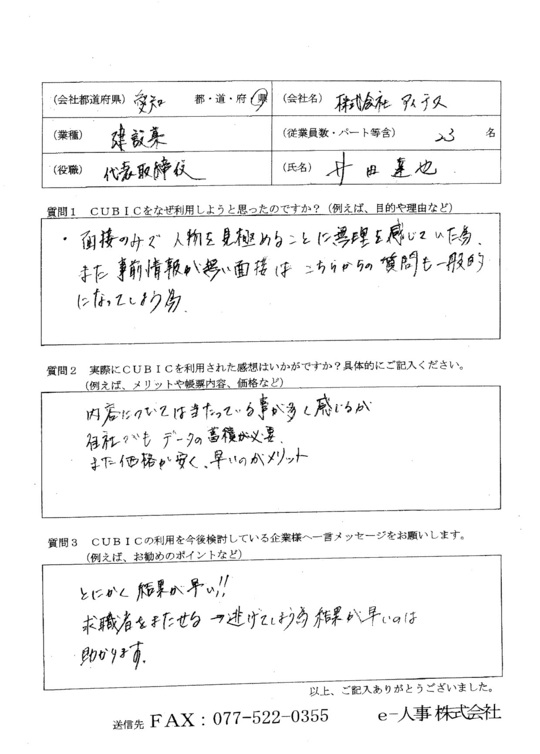 (会社都道府県) 愛知 都・道・府・県 (会社名) 株式会社 アイテス
(業種) 建設業 (従業員数・パート等含) 23 名
(役職) 代表取締役 (氏名) 井田 達也
質問1 CUBICをなぜ利用しようと思ったのですか?(例えば、目的や理由など)
・面接のみで人物を見極めることに無理を感じていた為.
また事前情報が無い面接は こちらからの質問も一般的
になってしまう為
質問2 実際にCUBICを利用された感想はいかがですか?具体的にご記入ください。
(例えば、メリットや帳票内容、価格など)
内容についてはあたっている事が多く感じるが
自社でも データの蓄積が必要.
また価格が安く、早いのがメリット
質問3 CUBICの利用を今後検討している企業様へ一言メッセージをお願いします。
(例えば、お勧めのポイントなど)
とにかく 結果が早い!!
求職者をまたせる→逃げてしまう為 結果が早いのは
助かります.
以上、ご記入ありがとうございました。
送信先 FAX:077-522-0355 e-人事株式会社